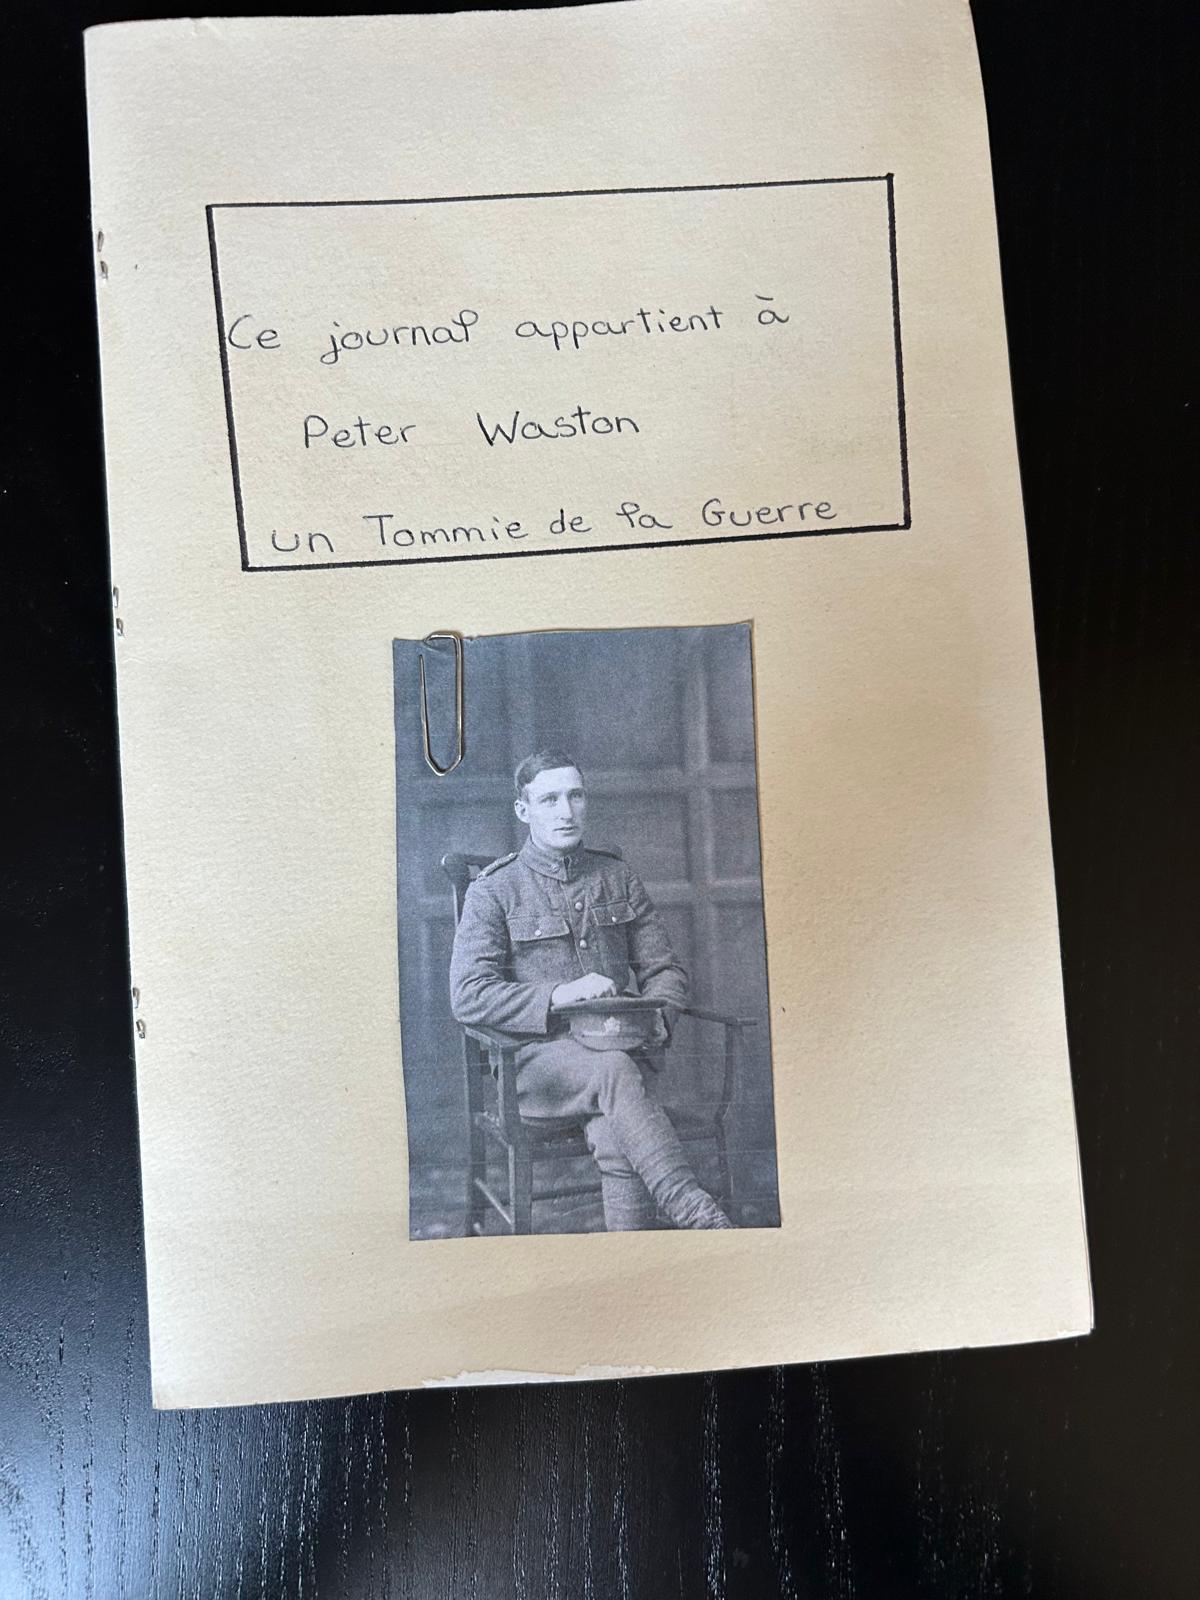 Ce journal appartient à
Peter Waston
un Tommie de la Guerre